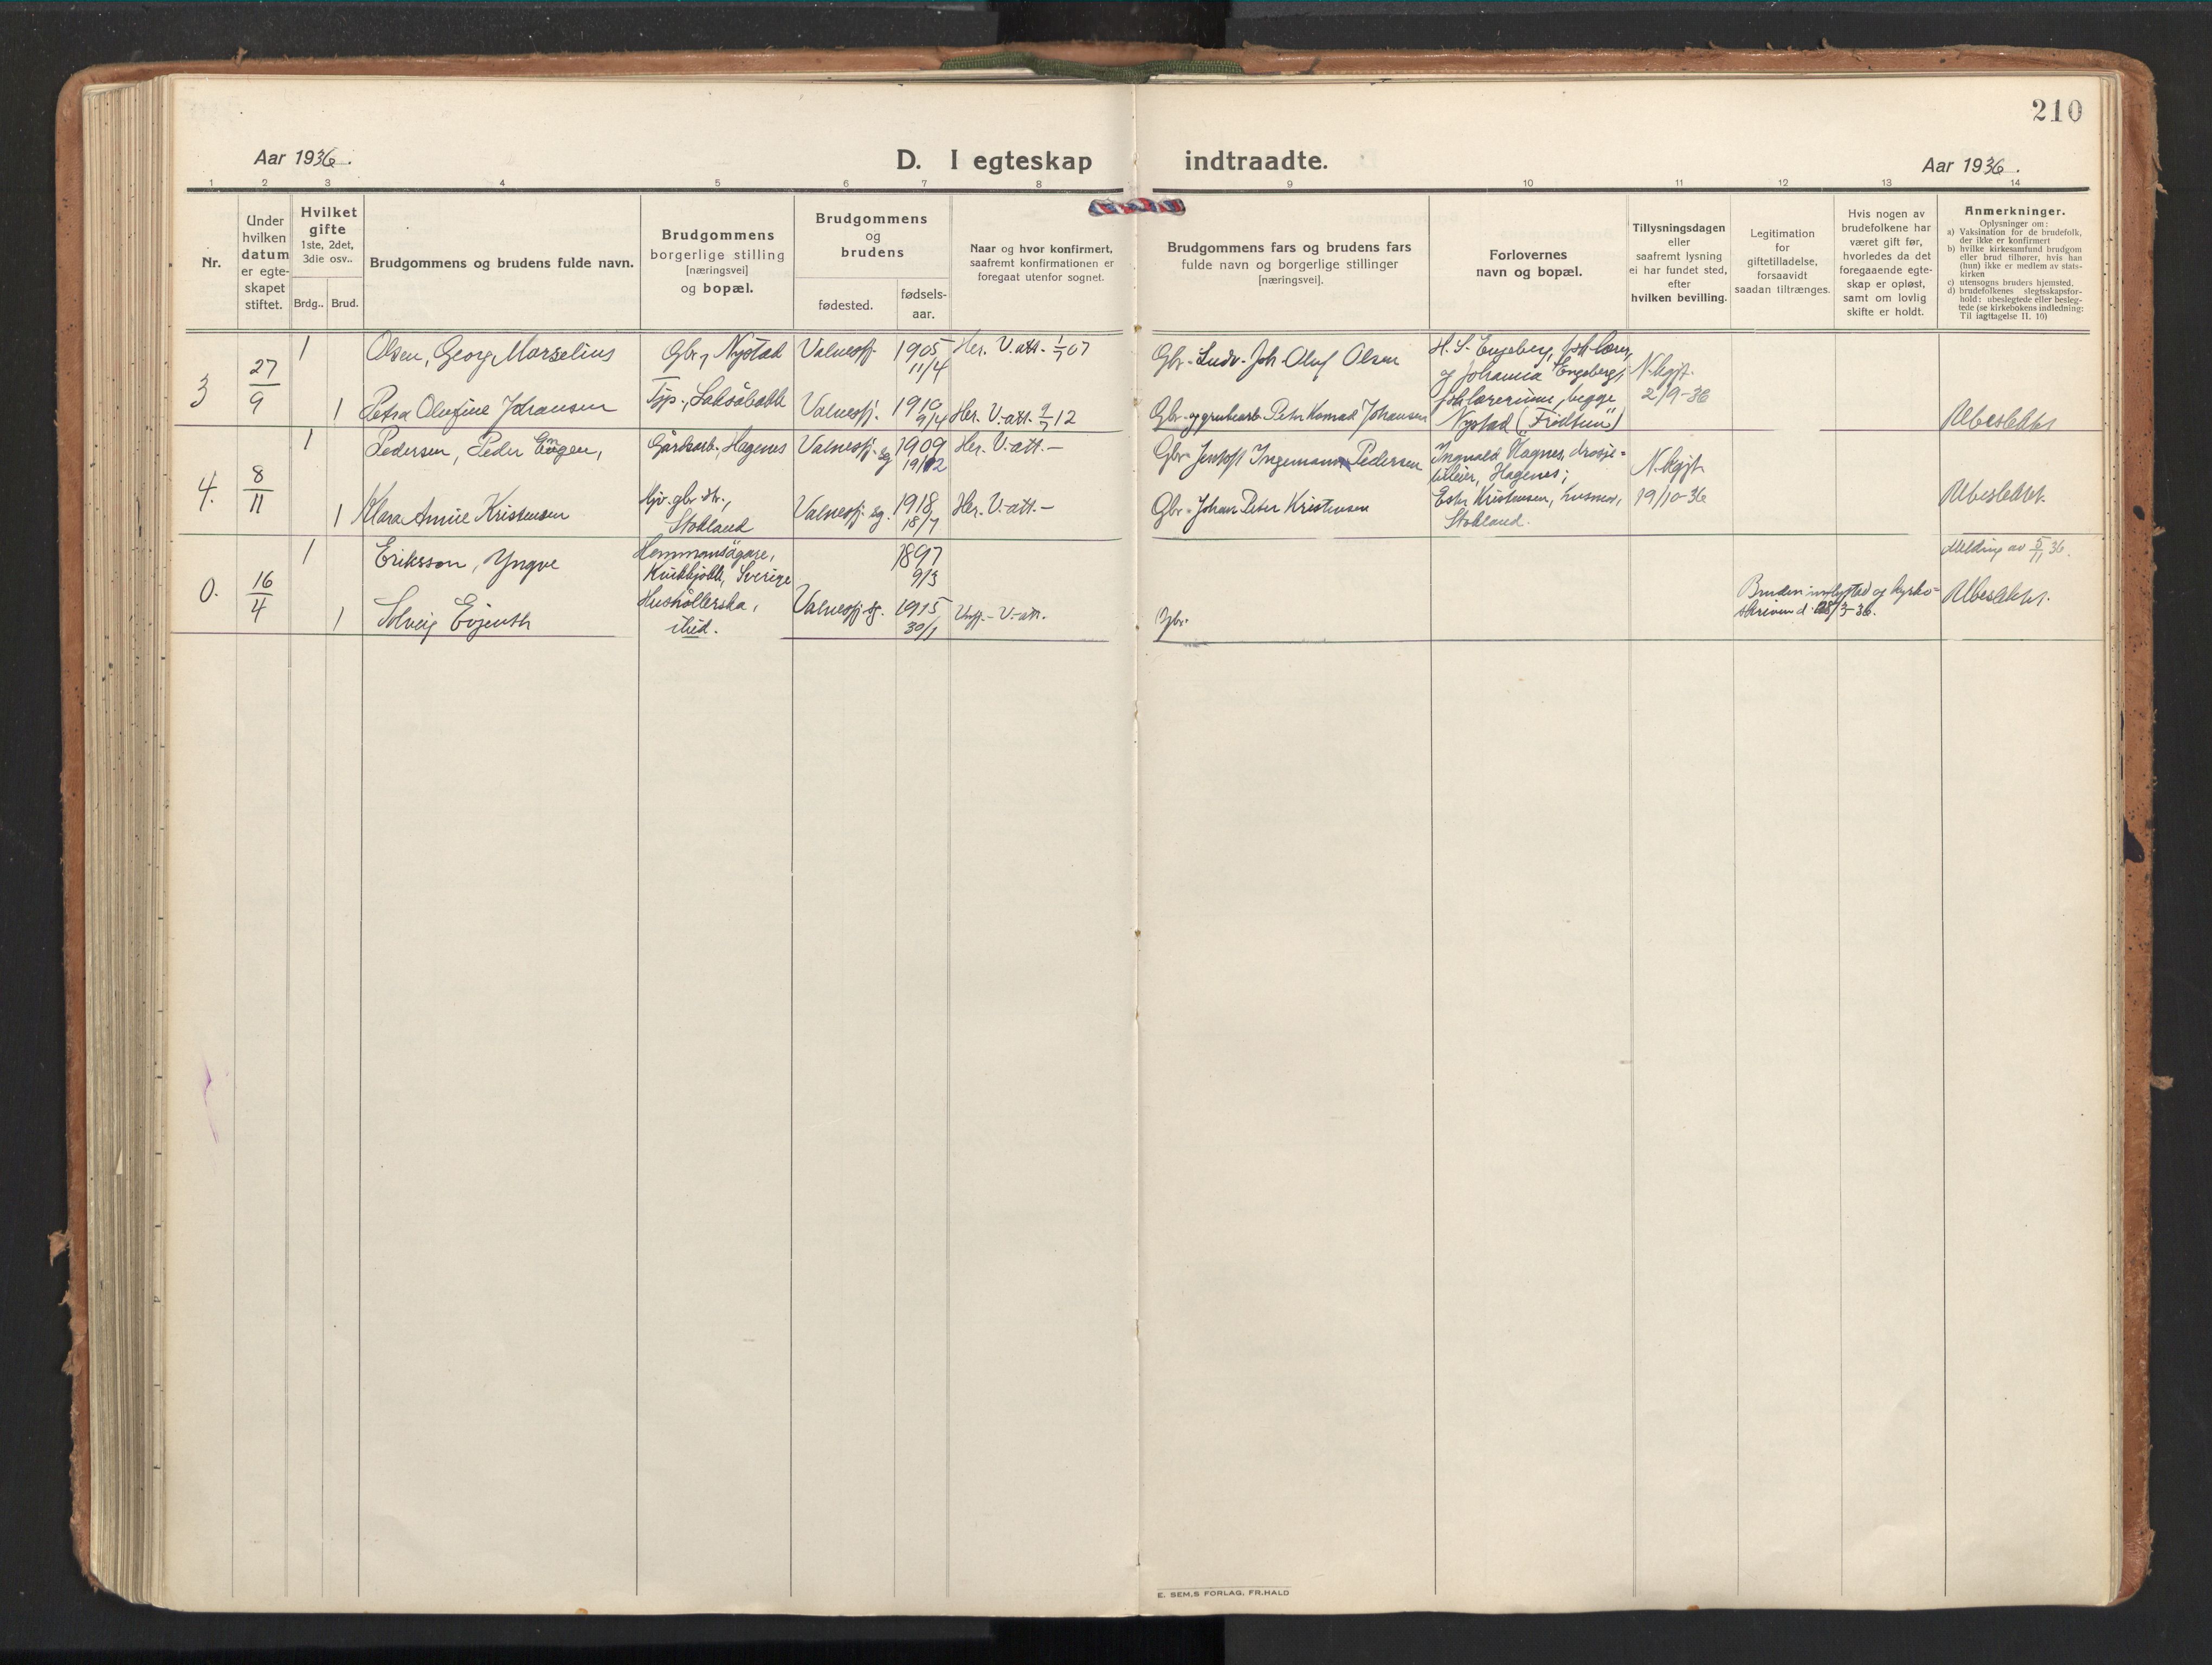 210
Aar 1936.
D. I egteskap indtraadte.
Aar 1936.
1 2 3 4 5 6 7 8 9 10 11 12 13 14
Nr.
Under
hvilken
datum
er egte-
skapet
stiftet.
Hvilket
gifte
1ste, 2det,
3die osv..
Brdg.. Brud.
Brudgommens og brudens fulde navn.
Brudgommens
borgerlige stilling
[næringsvei]
og bopæl.
Brudgommens
og
brudens
fødested.
fødsels-
aar.
Naar og hvor konfirmert,
saafremt konfirmationen er
foregaat utenfor sognet.
Brudgommens fars og brudens fars
fulde navn og borgerlige stillinger
[næringsvei].
Forlovernes
navn og bopæl.
Tillysningsdagen
eller
saafremt lysning
ei har fundet sted,
efter
hvilken bevilling.
Legitimation
for
giftetilladelse,
forsaavidt
saadan tiltrænges.
Hvis nogen av
brudefolkene har
været gift før,
hvorledes da det
foregaaende egte-
skap er opløst,
samt om lovlig
skifte er holdt.
Anmerkninger.
Oplysninger om:
a) Vaksination for de brudefolk,
der ikke er konfirmert
b) hvilke kirkesamfund brudgom
eller brud tilhører, hvis han
(hun) ikke er medlem av stats-
kirken
c) utensogns bruders hjemsted,
d) brudefolkenes slegtsskapsfor-
hold: ubeslegtede eller besleg-
tede (se kirkebokens indledning:
Til iagttagelse II. 10)
3
27/9
1
Olsen, Georg Marselius
Gbr., Nystad
Valnesfj.
1905
11/4
Her. V.att. 1/7 07
Gbr. Ludv. Joh. Oluf Olsen
H. S. Engeberg,
og Johanna Engeberg,
begge
Nystad ("Fridtun")
N.kgjt.
2/9-36
1
Petra Olufine Johansen
Tjp., Laksåbakk
Valnesfj.
1910
9/4
Her. V.att. 9/7 12
Gbr. og grubearb. Peter Konrad Johansen
Ubeslektet
4.
8/11
1
Pedersen, Peder Eugen,
Gårdsarb., Hagenes
Valnesfj. sg
1909
19/12
Her. V.att. –
Gbr. Jentoft Ingemann Pedersen
Ingvald Hagnes, drosje-
bileier, Hagenes;
Ester Kristensen, husmor,
Stokland.
N.kgjt
19/10-36
1
Klara Annie Kristensen
Hjv. gbr.dtr.,
Stokland
Valnesfj. sg.
1918
18/7
Her. V.att. –
Gbr. Johan Peter Kristensen
Ubeslektet.
0.
16/4
1
Eriksson, Yngve
Hemmansägare,
Kvikkjokk, Sverige
1897
9/3
Melding av 5/11 36.
1
Solveig Evjenth
Hushållerska,
ibid.
Valnesfj. sg.
1915
30/1
V.att.
Gbr.
Bruden innflyttad og kyrko-
skriven d. 28/3-36.
Ubeslektet.
E. SEM,S FORLAG, FR.HALD